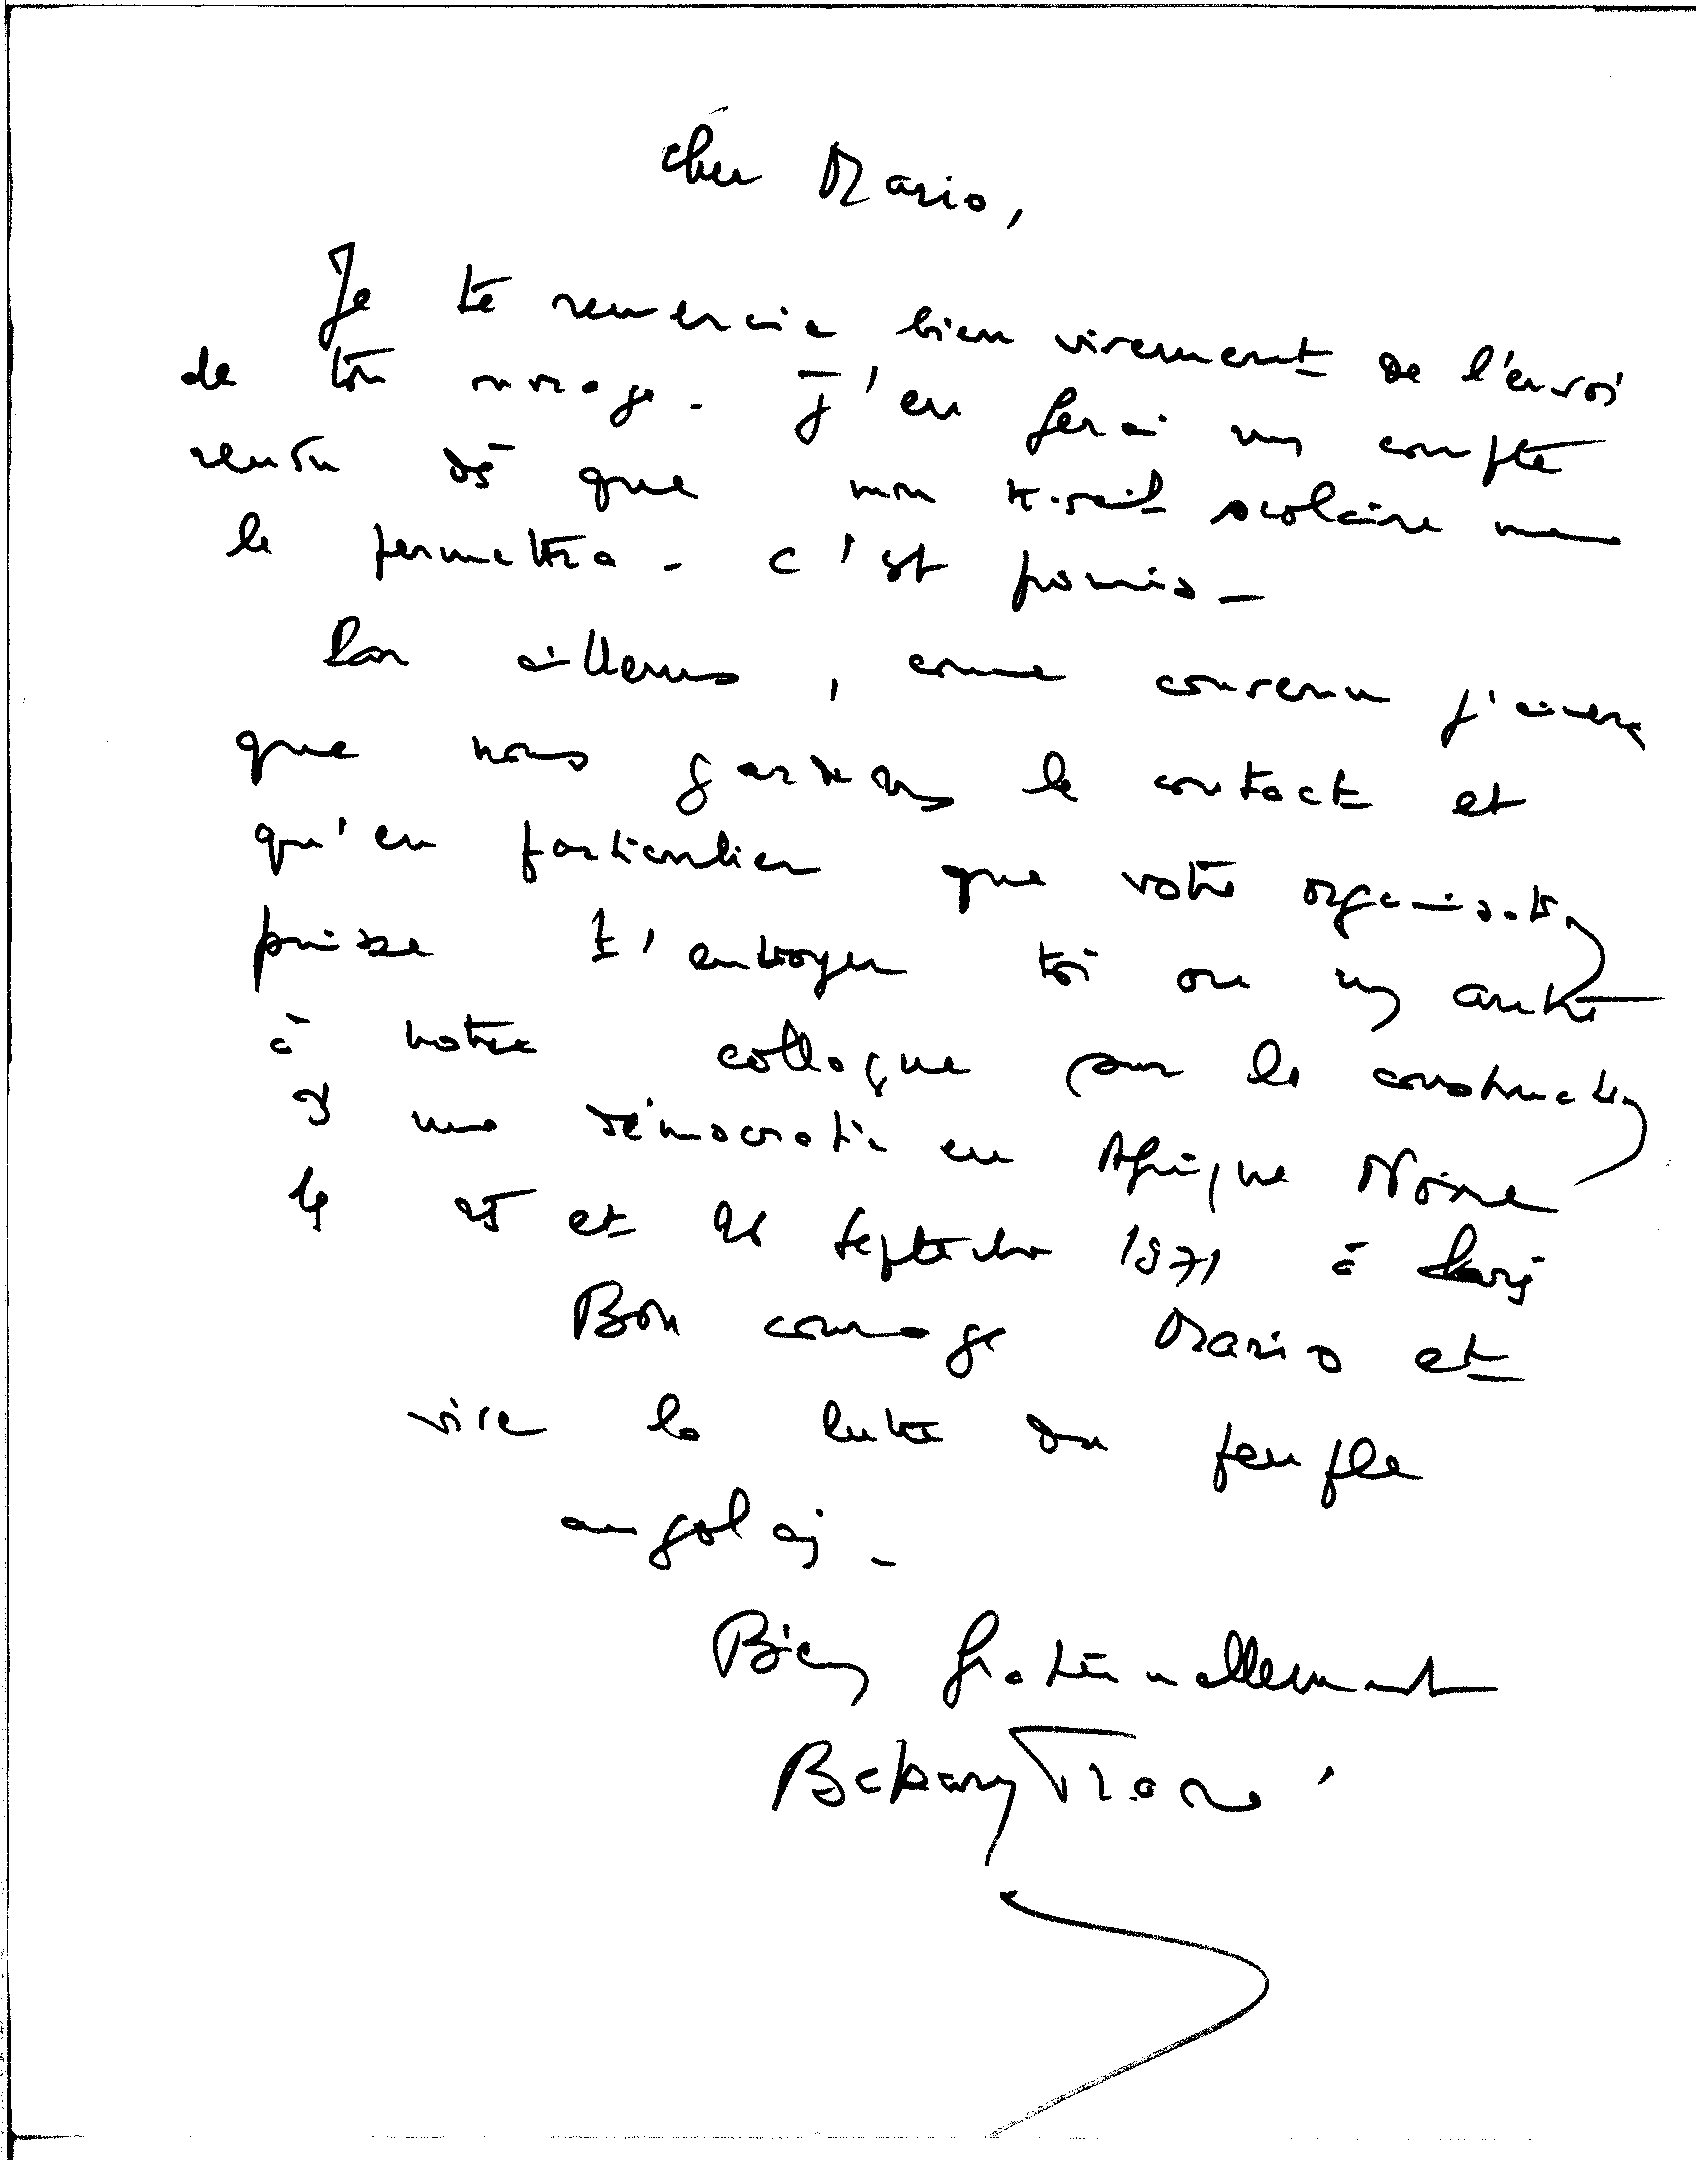 Cher Mario,
Je te remercie bien vivement de l'envoi
de ton ouvrage. J'en ferai un compte
rendu dès que mon travail scolaire me
le permettra. C'est promis.
Par ailleurs, comme convenu j'aimerai
que nous gardions le contact et
qu'en particulier que votre organisation
puisse t'envoyer toi ou un autre
à notre colloque sur la construction
d'une démocratie en Afrique Noire
les 25 et 26 Septembre 1971 à Paris
Bon courage Mario et
vive la lutte du peuple
angolais.
Bien fraternellement
Bakary Traoré